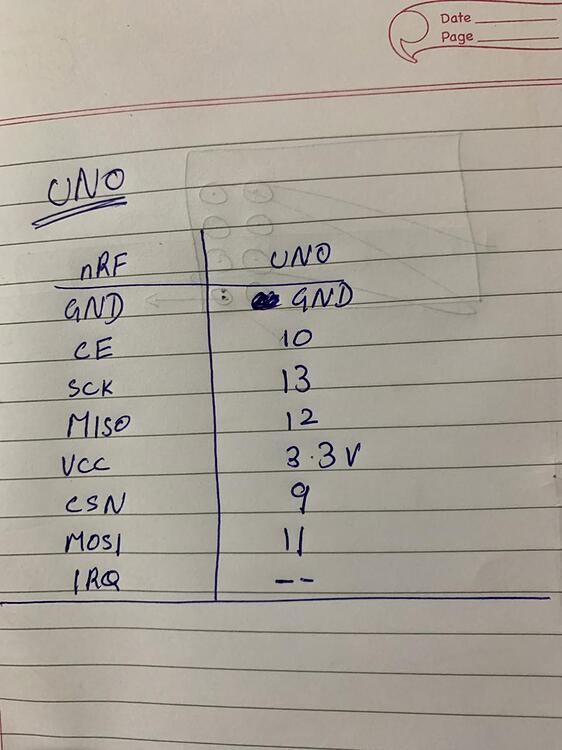 Date
Page
UNO
nRF UNO
GND GND
CE 10
SCK 13
MISO 12
VCC 3.3V
CSN 9
MOSI 11
IRQ --